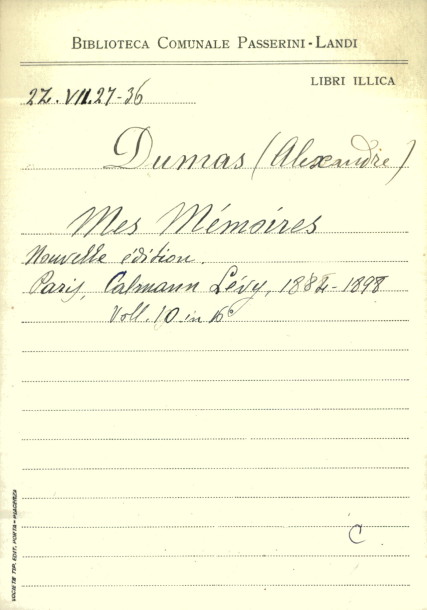 BIBLIOTECA COMUNALE PASSERINI - LANDI
LIBRI ILLICA
2Z. VII. 27-36
Dumas (Alexandre)
Mes Mémoires
Nouvelle édition.
Paris, Calmann Lévy, 1898
Voll. 10 in 16º
C
TIP. EDIT. PORTA - PIACENZA